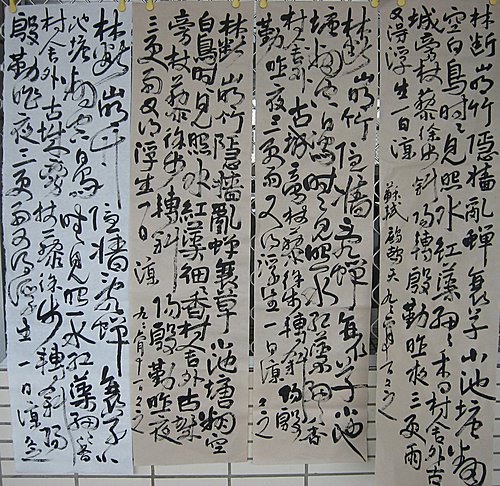 林斷山明竹隱牆亂蟬衰草小池塘翻
空白鳥時時見照水紅蕖細細香村舍外古
城旁杖藜徐步斜陽轉殷勤昨夜三更雨
又得浮生一日涼
蘇軾鷓鴣天
林斷山明竹隱牆亂蟬衰草小池
塘翻空白鳥時時見照水紅蕖細細香
村舍外古城旁杖藜徐步轉斜陽殷
勤昨夜三更雨又得浮生一日涼
林斷山明竹隱牆亂蟬衰草小池塘翻空
白鳥時時見照水紅蕖細細香村舍外古城
旁杖藜徐步轉斜陽殷勤昨夜
三更雨又得浮生一日涼
林斷山明竹隱牆亂蟬衰草小
池塘翻空白鳥時時見照水紅蕖細細香
村舍外古城旁杖藜徐步轉斜陽
殷勤昨夜三更雨又得浮生一日涼